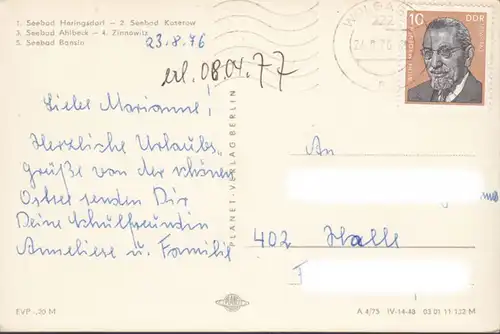 1. Seebad Heringsdorf — 2. Seebad Koserow
3. Seebad Ahlbeck — 4. Zinnowitz
5. Seebad Bansin
23.8.76
erl. 08.04.77
WOLGAST
10
DDR
Liebe Marianne!
Herzliche Urlaubs-
grüße von der schönen
Ostsee senden Dir
Deine Schulfreundin
Anneliese u. Familie
PLANET-VERLAG BERLIN
An
402 Halle
EVP -,20 M
PLANET
A 4/75 IV-14-48 03 01 11 132 M